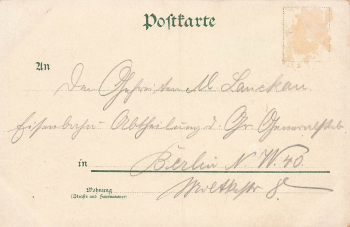 Postkarte
An
Den Gefreiten M. Lanckau
Eisenbahn-Abtheilung d. Gr. Generalstab
in Berlin N.W. 40
Wohnung
(Straße und Hausnummer)
Moltkestr 8.